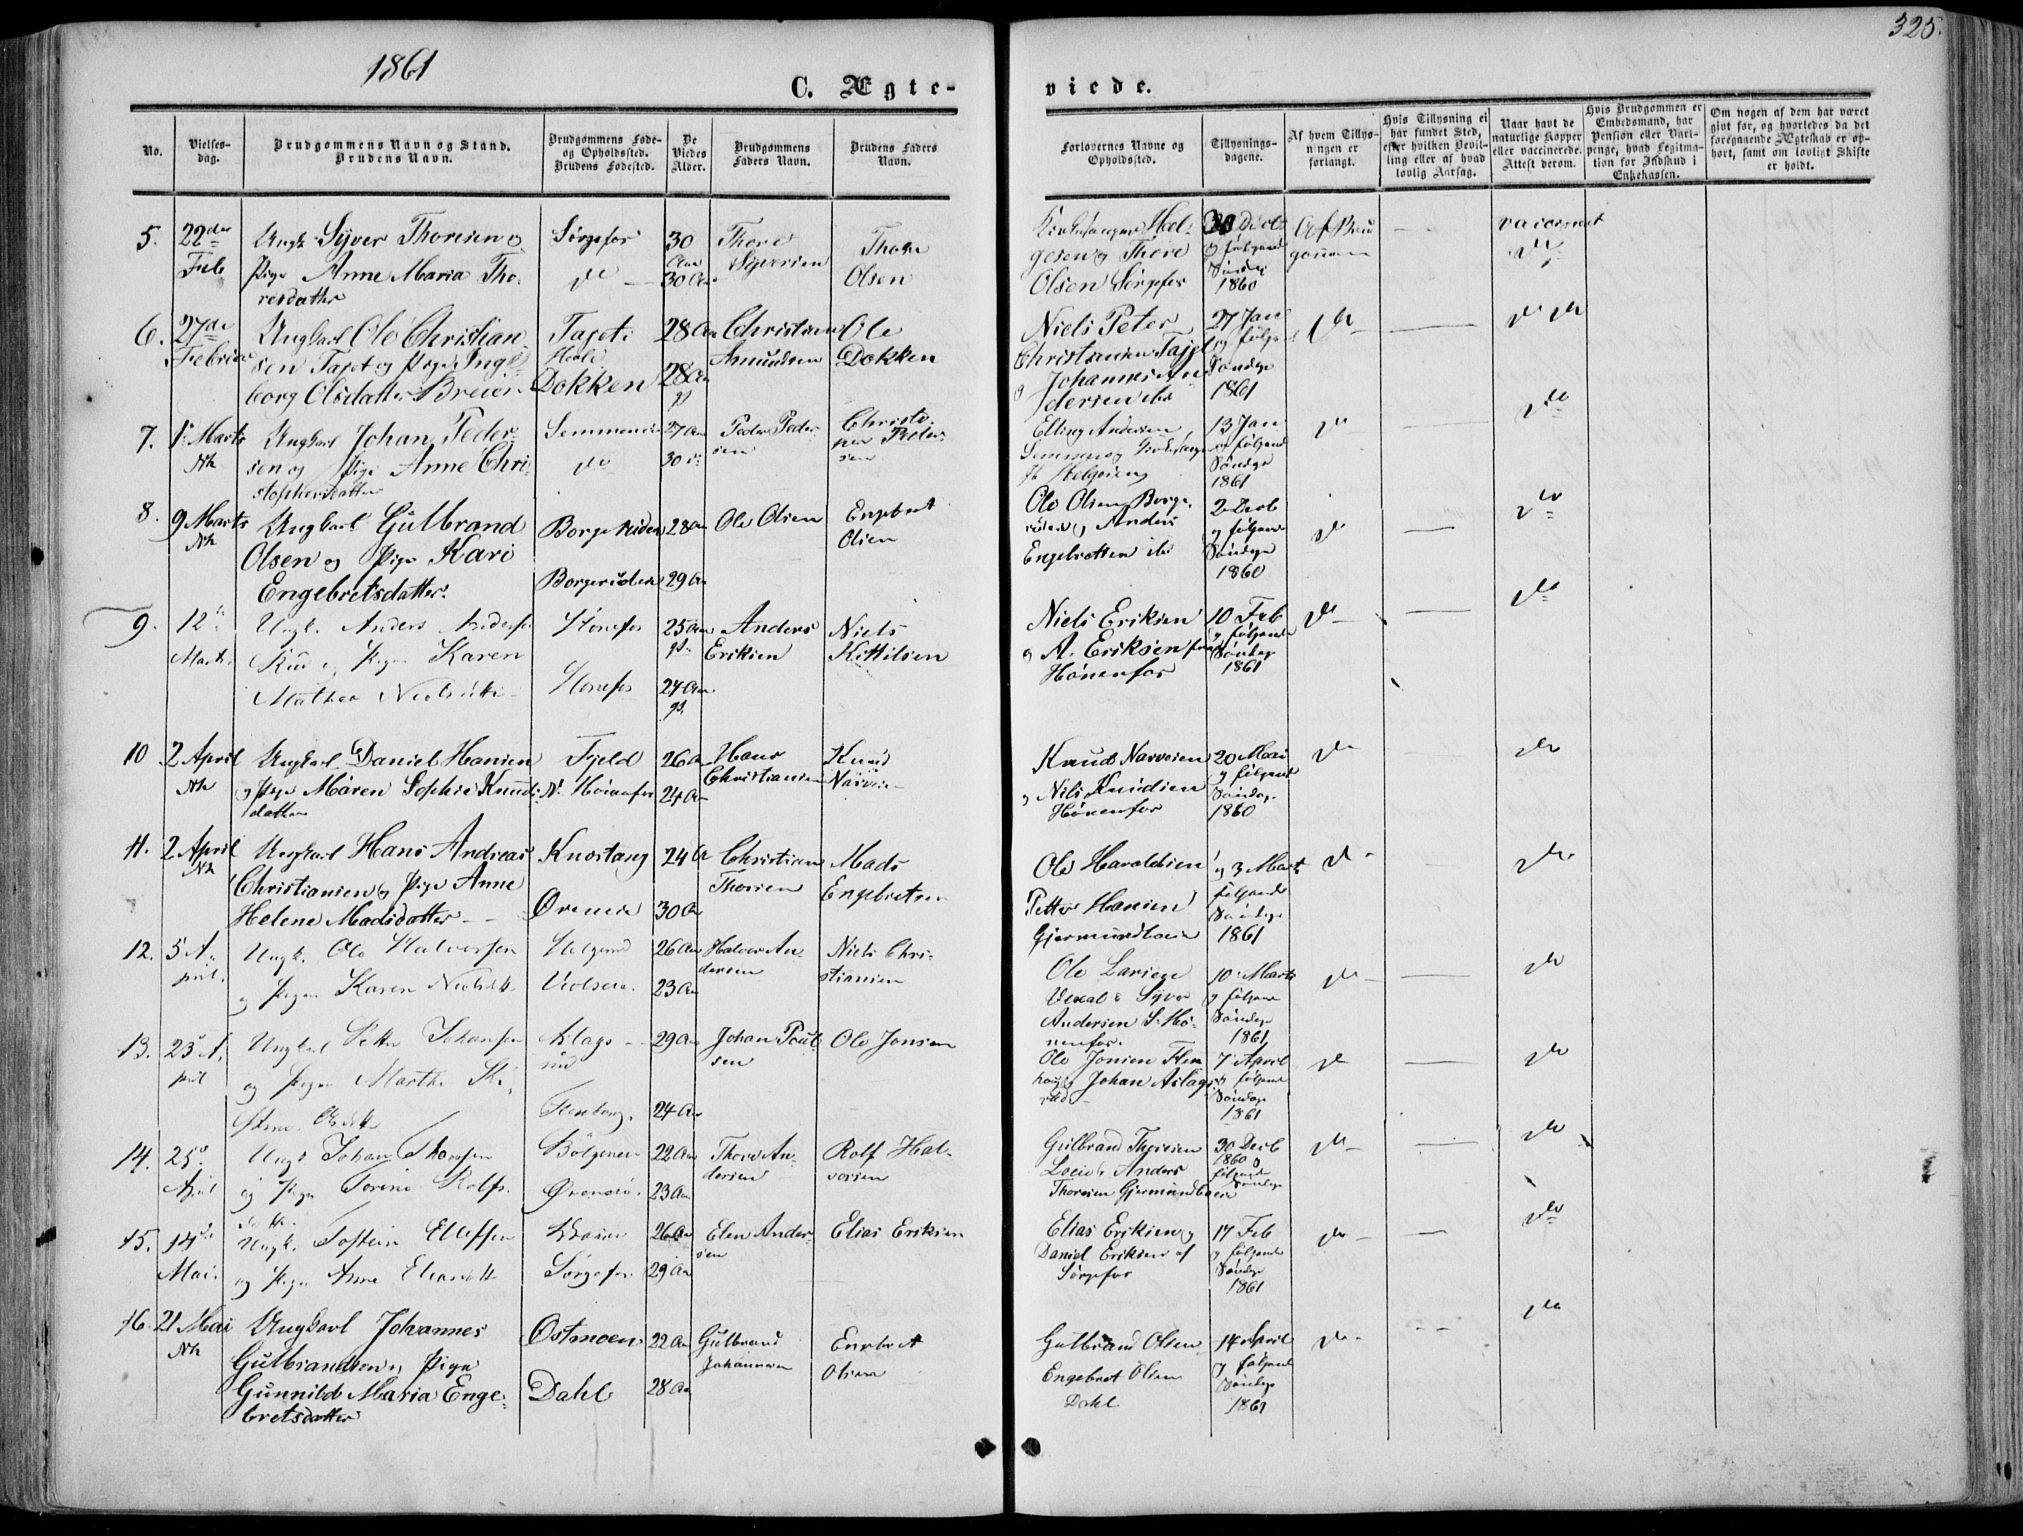 1861
325.
C. Ægte-
viede.
No.
Vielses-
dag.
Brudgommens Navn og Stand.
Brudens Navn.
Brudgommens Føde-
og Opholdssted.
Brudens Fødested.
De
Viedes
Alder.
Brudgommens
Faders Navn.
Brudens Faders
Navn.
Forlovernes Navne og
Opholdssted.
Tillysnings-
dagene.
Af hvem Tillys-
ningen er
forlangt.
Hvis Tillysning ei
har fundet Sted,
efter hvilken Bevil-
ling eller af hvad
lovlig Aarsag.
Naar havt de
naturlige Kopper
eller vaccinerede.
Attest derom.
Hvis Brudgommen er
Embedsmand, har
Pension eller Vart-
penge, hvad Legitima-
tion for Indskud i
Enkekassen.
Om nogen af dem har været
givt før, og hvorledes da det
foregaaende Ægteskab er op-
hørt, samt om lovligt Skifte
er holdt.
5. 22de Feb
Ungk Syver Thoresen og
Pige Anne Maria Tho-
resdatter
Sørgefos
do
30 Aar
30 Aar
Thore
Syversen
Thore
Olsen
Kirkesanger Hel-
gesen og Thore
Olsen Sørgefos
30 Decb
og følgende
Søndage
1860
Af Brud
gommen
vaccineret
do
6. 27de
Februar
Ungkarl Ole Christian-
sen Tajet og Pige Inge-
borg Olsdatter Breien
Tajet
Hole
Dokken
28 Aar
28 Aar
Christian
Amundsen
Ole
Dokken
Niels Peter
Christiansen Tajet
og Johannes An
dersen ibd
27 Jan
og følge
Søndage
1861
do
do do
7. 1 Marts
Ungkarl Johan Peder-
sen og Pige Anne Chri-
stophersdatter
Semmen
do
27 Aar
30
Peder Peder
sen
Christo
pher Peter
sen
Elling Andersen
13 Jan
og følgende
Søndage
1861
do
do
8. 9 Marts
Ungkarl Gulbrand
Olsen og Pige Kari
Engebretsdatter
Borgeruden
Borgeruden
28 Aar
29 Aar
Ole Olsen
Engebret
Olsen
Ole Olsen Borge-
ruden og Anders
Engebretsen ibd
2 Decb
og følgende
Søndage
1860
do
do
9. 12
Marts
Ungk. Anders Anders
og Pige Karen
Mathea Nielsdatter
Hønefos
Hønefos
25 Aar
24 Aar
Anders
Eriksen
Niels
Kittilsen
Niels Eriksen
og A. Eriksen
Hønenfos
10 Feb
og følgende
Søndage
1861
do
do
10 2 April
Ungkarl Daniel Hansen
og Pige Maren Sophie Knuds-
datter
Fjeld
N. Hønenfos
26 Aar
24 Aar
Hans
Christiansen
Knud
Narvesen
Knud Narvesen
og Nils Knudsen
Hønenfos
20 Mai
og følgende
Søndage
1860
do
do
11. 2 April
Ungkarl Hans Andreas
Christiansen og Pige Anne
Helene Madsdatter
Knostang
Øreneie
24 Aar
30 Aar
Christian
Thoresen
Mads
Engebretsen
Ole Haraldsen
Petter Hansen
Gjermundboeie
3 Marts
følgende
Søndage
1861
do
do
12. 5 A-
pril.
Ungk. Ole Halvorsen
og Pigen Karen Nielsdtr
26 Aar
23 Aar
Halvor An-
dersen
Niels Chri-
stiansen
Ole Larsen
og Syver
Andersen S. Hø-
nenfos.
10 Marts
og følgende
Søndage
1861
do
do
13. 23 A.
pril
Ungkarl Peter Johansen
og Pigen Marthe Ki
stine Olsdtr
Aslags-
rud
29 Aar
24 Aar
Johan Poul-
sen
Ole Jonsen
Ole Jonsen
Johan Aslags
rud
7 April
og følgende
Søndage
1861
do
do
14. 25
April
Ungk Johan Thoresen
og Pigen Torine Rolfs-
datter
22 Aar
23 Aar
Thore An-
dersen
Rolf Hal-
vorsen
Gulbrand Thoresen
Loeie, Anders
Thoresen Gjermundboeie
30 Decb
1860 og
følgende
Søndage
do
do
15. 14de
Mai.
Ungk. Tostein Ellefsen
og Pigen Anne Eliasdtr
Sørgefos
26 Aar
29 Aar
Elen Ander-
sen
Elias Eriksen
Elias Eriksen og
Daniel Eriksen af
Sørgefos
17 Feb
og følgende
Søndage
1861
do
do
16. 21 Mai
Ungkarl Johannes
Gulbrandsen og Pige
Gunnild Maria Enge-
bretsdatter
Østmoen
Dahl
22 Aar
28 Aar
Gulbrand
Johannesen
Engebret
Olsen
Gulbrand Olsen
Engebret Olsen
Dahl
14 April
og følgende
Søndage
1861
do
do